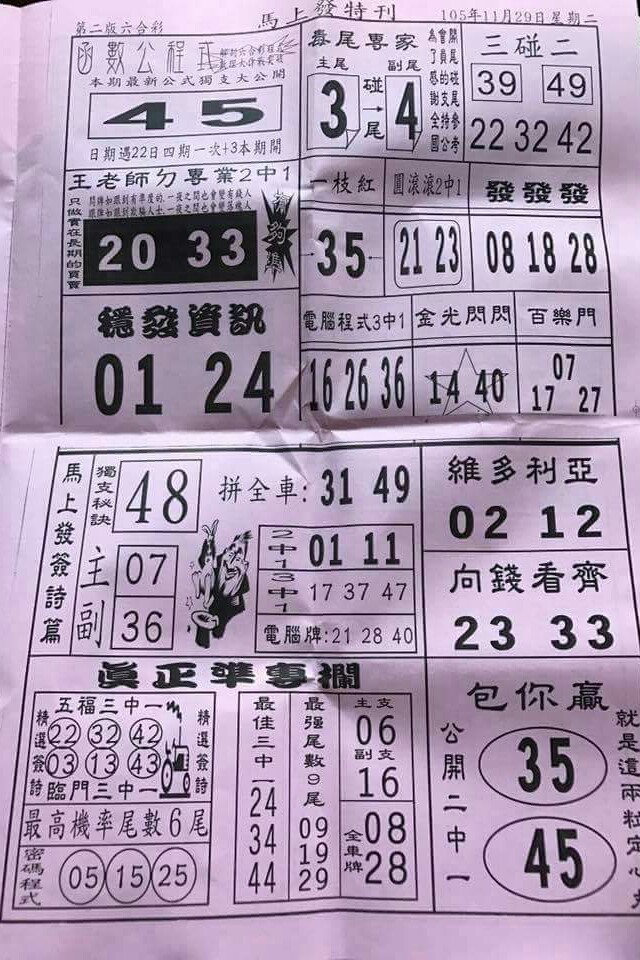 第二版六合彩
馬上發特刊
105年11月29日星期二
函數公程式
本期最新公式獨支大公開
45
日期遇22日四期一次+3本期開
毒尾專家
主尾
副尾
3
碰→尾
4
為了感謝全國
會員的支持公
開碰尾參考
三碰二
39 49
22 32 42
王老師ㄉ專業2中1
只做實在長期的買賣
20 33
一枝紅
35
圓滾滾2中1
21 23
發發發
08 18 28
穩發資訊
01 24
電腦程式3中1
16 26 36
金光閃閃
14 40
百樂門
07
17 27
馬上發簽詩篇
獨支秘訣
48
主
07
副
36
拼全車:31 49
2中1
01 11
3中1
17 37 47
電腦牌:21 28 40
維多利亞
02 12
向錢看齊
23 33
真正準專欄
五福三中一
精選簽詩
22 32 42
03 13 43
精選簽詩
臨門三中一
最高機率尾數6尾
密碼程式
05 15 25
最佳三中一
24
34
44
最強尾數9尾
09
19
29
主支
06
副支
16
全車牌
08
28
包你贏
公開二中一
35
45
就是這兩粒定心丸